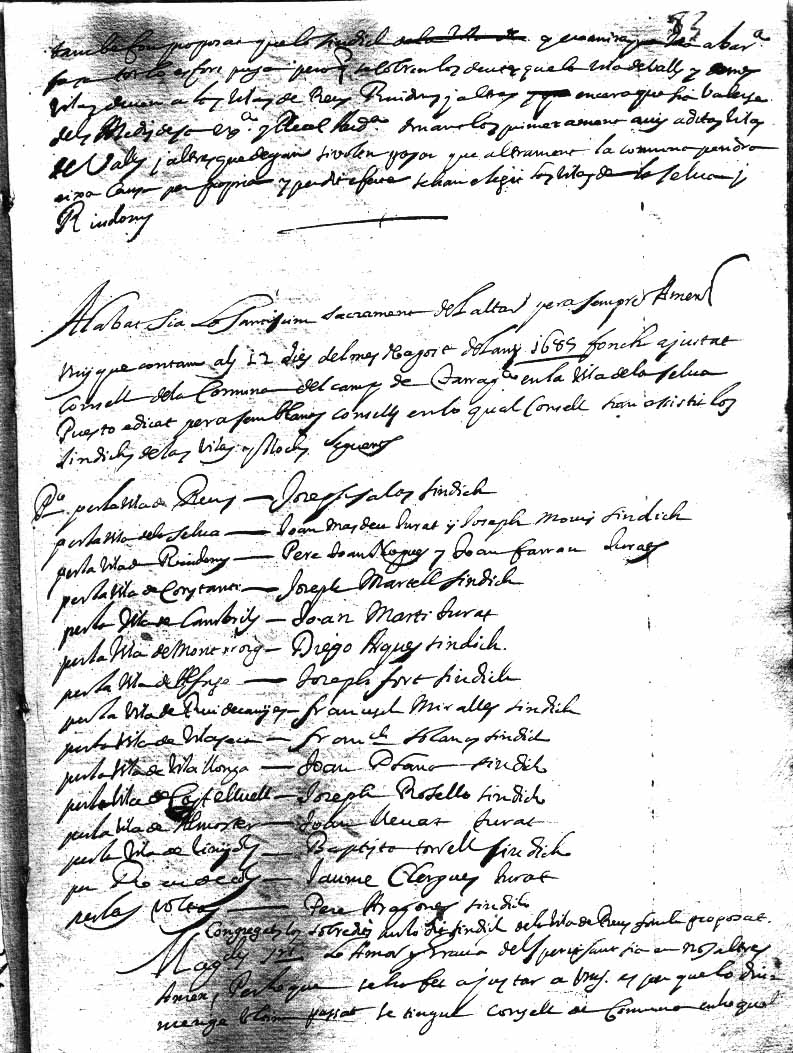 82
tambe fou proposat que lo sindich
fassa tot lo esfors per a que se cobren los deutes que la Vila de Valls y demes
Vilas deuen a las Vilas de Reus Riudoms y altres encara que sia valerse
dels Medis de sa Exª y Real Audª donantlos primerament avis a ditas Vilas
de Valls y altres que degan si volen pagar que altrament la comuna pendra
eixa causa per propria y per dit efecte se han elegit las Vilas de la Selva y
Riudoms
Alabat sia lo Santissim Sacrament del Altar per a sempre Amen
Vuy que contam als 12 dies del mes de Agost del any 1685 fonch ajustat
Consell de la Comuna del camp de Tarragª en la Vila de la Selva
Puesto adicat per a semblants consells en lo qual Consell han assistit los
sindichs de las Vilas y llochs seguents
Pº per la Vila de Reus — Joseph Salas sindich
per la Vila de la Selva — Joan Masdeu Jurat y Joseph Monis sindich
per la Vila de Riudoms — Pere Joan Nogues y Joan Farran Jurats
per la Vila de Constanti — Joseph Martell sindich
per la Vila de Cambrils — Joan Marti Jurat
per la Vila de Montroig — Diego Arques sindich.
per la Vila de Alforja — Joseph Fort sindich
per la Vila de Riudecanyes — Francesch Miralles sindich
per la Vila de Vilaseca — Franch Solanes sindich
per la Vila de Vilallonga — Joan Plana sindich
per la Vila de Castellvell — Joseph Rosello sindich
per la Vila de Almoster — Joan Jurat
per la Vila de Vinyols — Baptista Torrell sindich
per Riudecols — Jaume Clergues Jurat
per las Voltas — Pere Aragones sindich
Congregats los sobredits per lo dit sindich de la Vila de Reus fonch proposat.
Magchs Srs Lo Amor y Gracia del Esperit Sant sia en nosaltres
Amen, Perlo que se ha fet ajustar a Vms. es per que lo diu-
menge ultim passat se tingue Consell de Comuna en lo qual